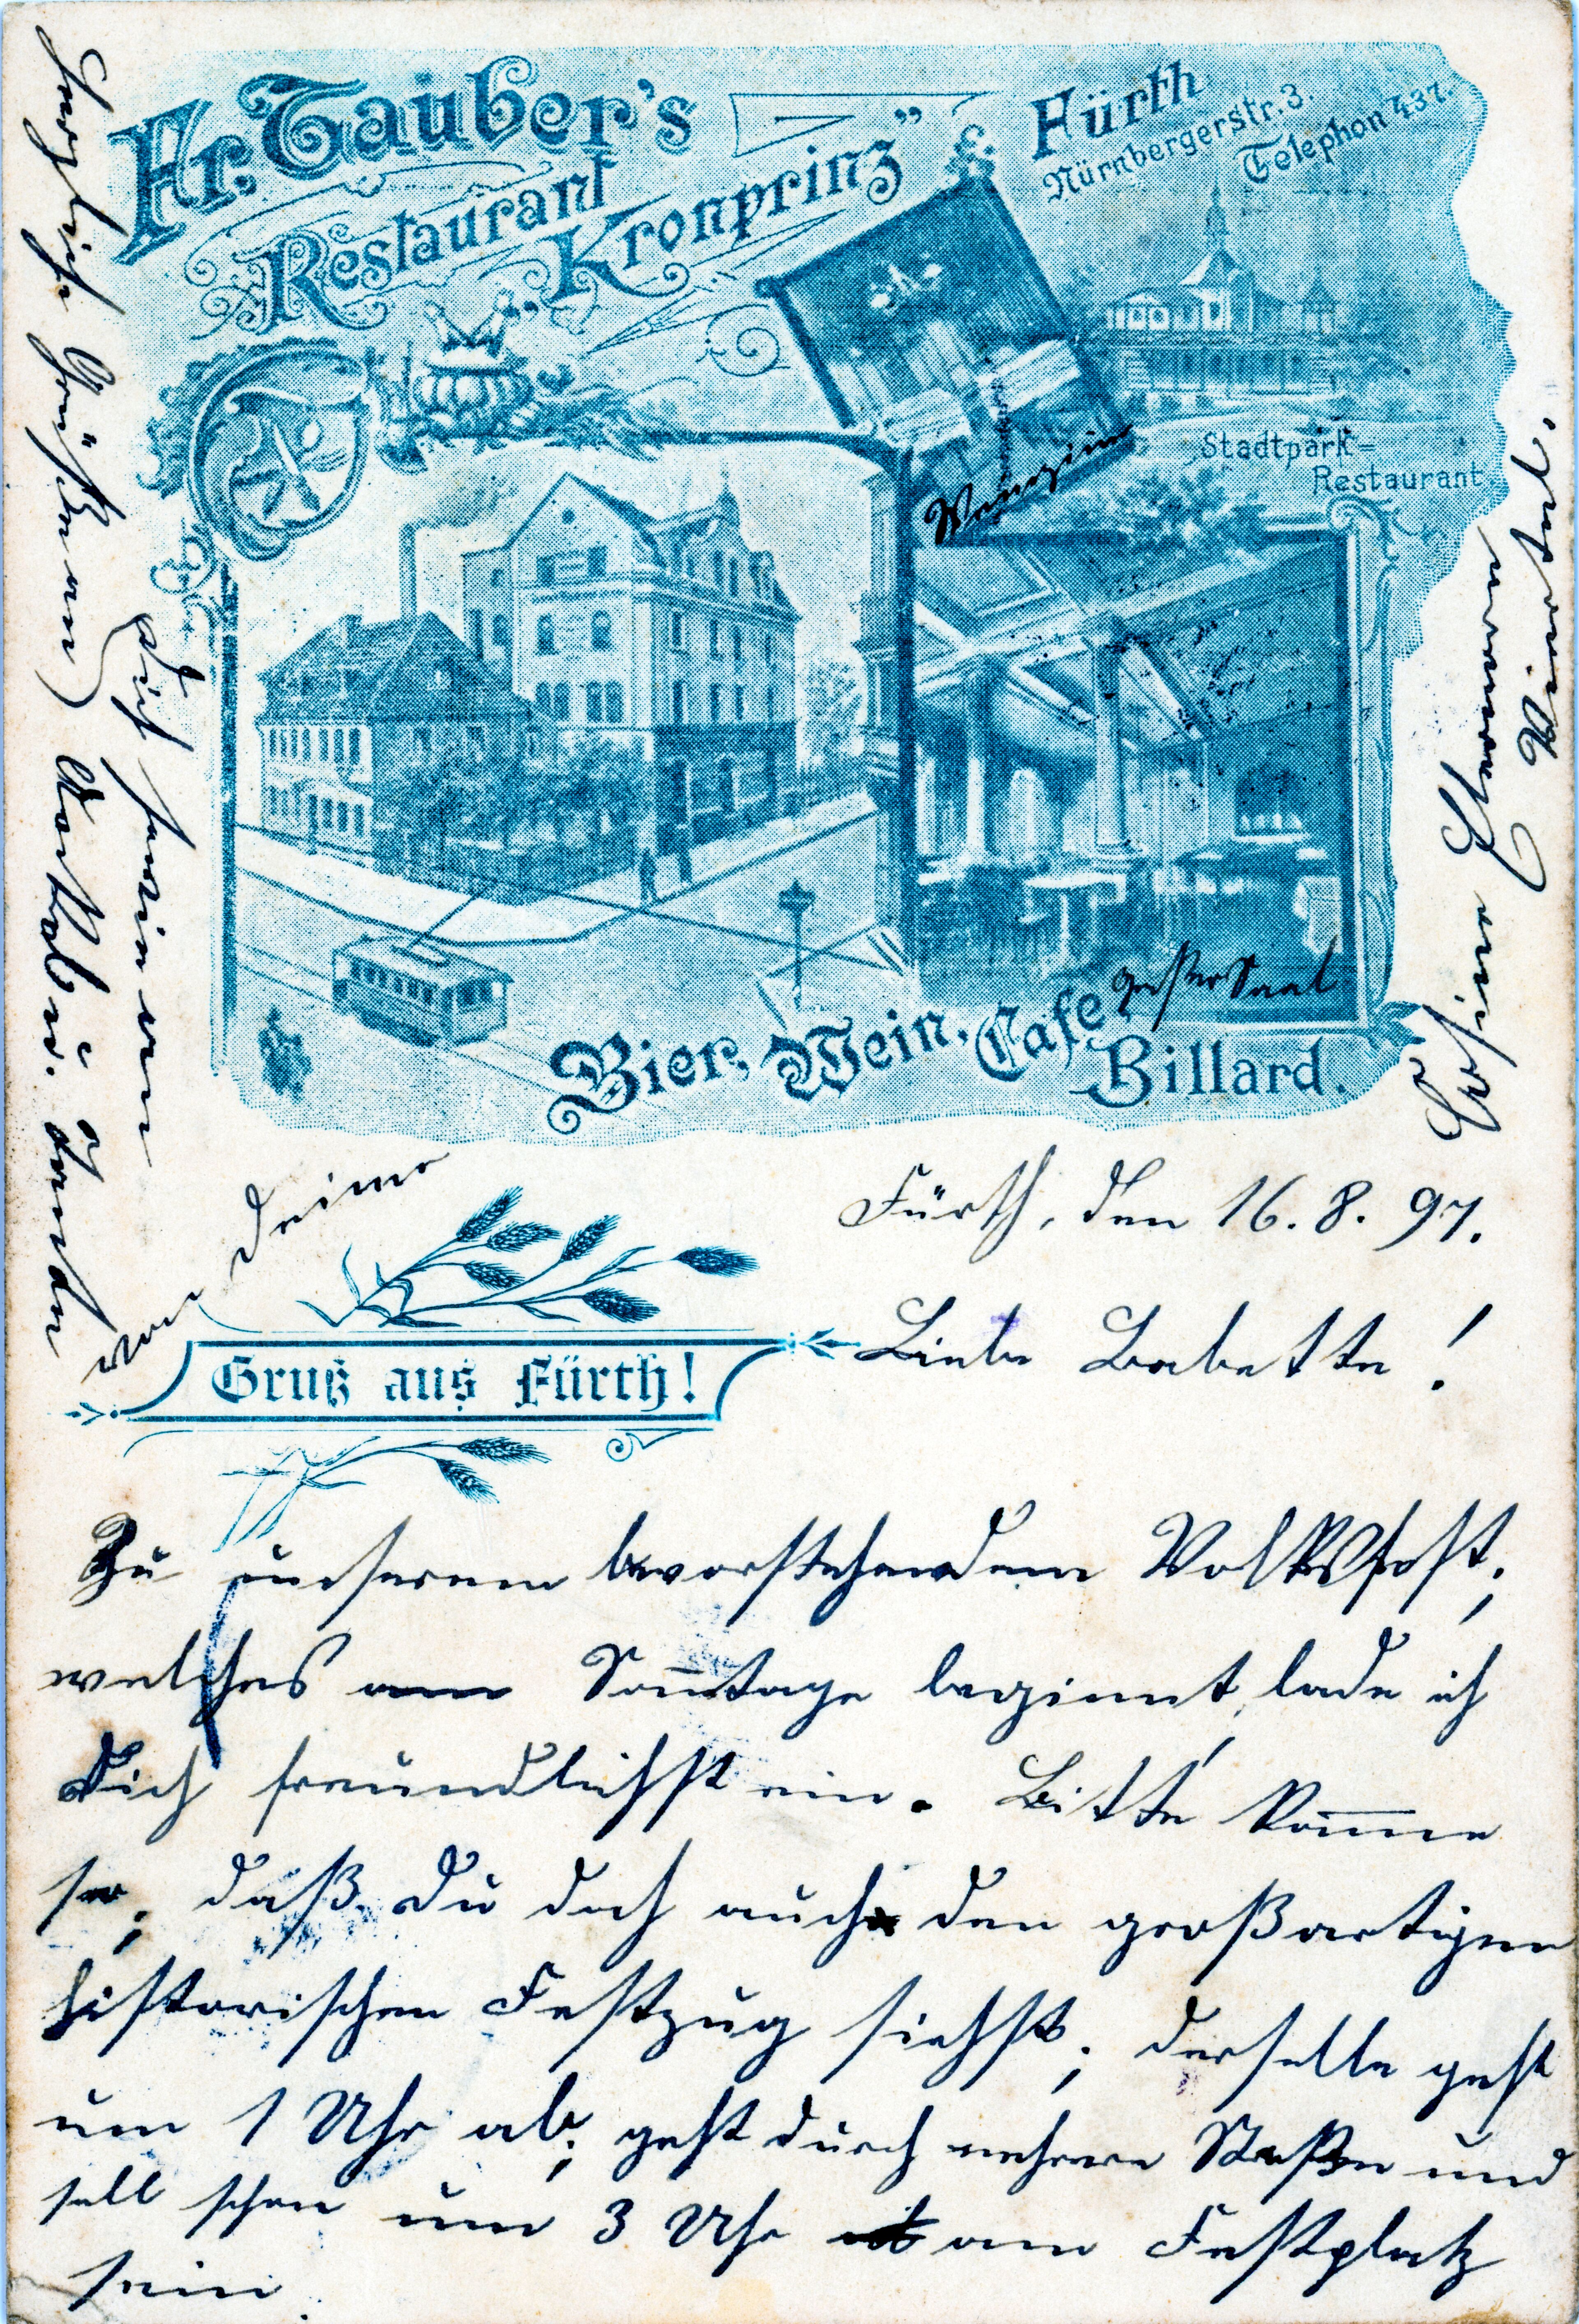 Fr. Tauber's
Restaurant
„Kronprinz”
Fürth
Nürnbergerstr. 3.
Telephon 437.
Stadtpark=
Restaurant
großer Saal
Bier, Wein, Cafe,
Billard.
Gruß aus Fürth!
Fürth, den 16. 8. 97.
Liebe Babette!
Zu unserem bevorstehendem Volksfest,
welches am Sonntage beginnt, lade ich
Dich freundlichst ein. Bitte komme
so, daß Du doch auch den großartigen
historischen Festzug siehst, derselbe geht
um 1 Uhr ab, geht durch mehrere Straßen und
soll schon um 3 Uhr am Festplatz
sein.
Herzliche Grüße an
Dich sowie von
von Deiner